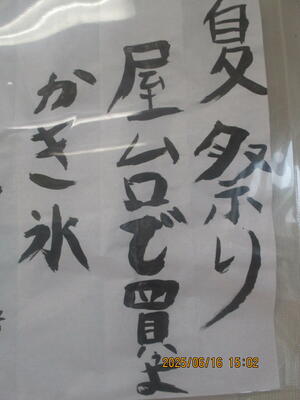 夏祭り
屋台で買よ
かき氷
2025/06/16 15:02